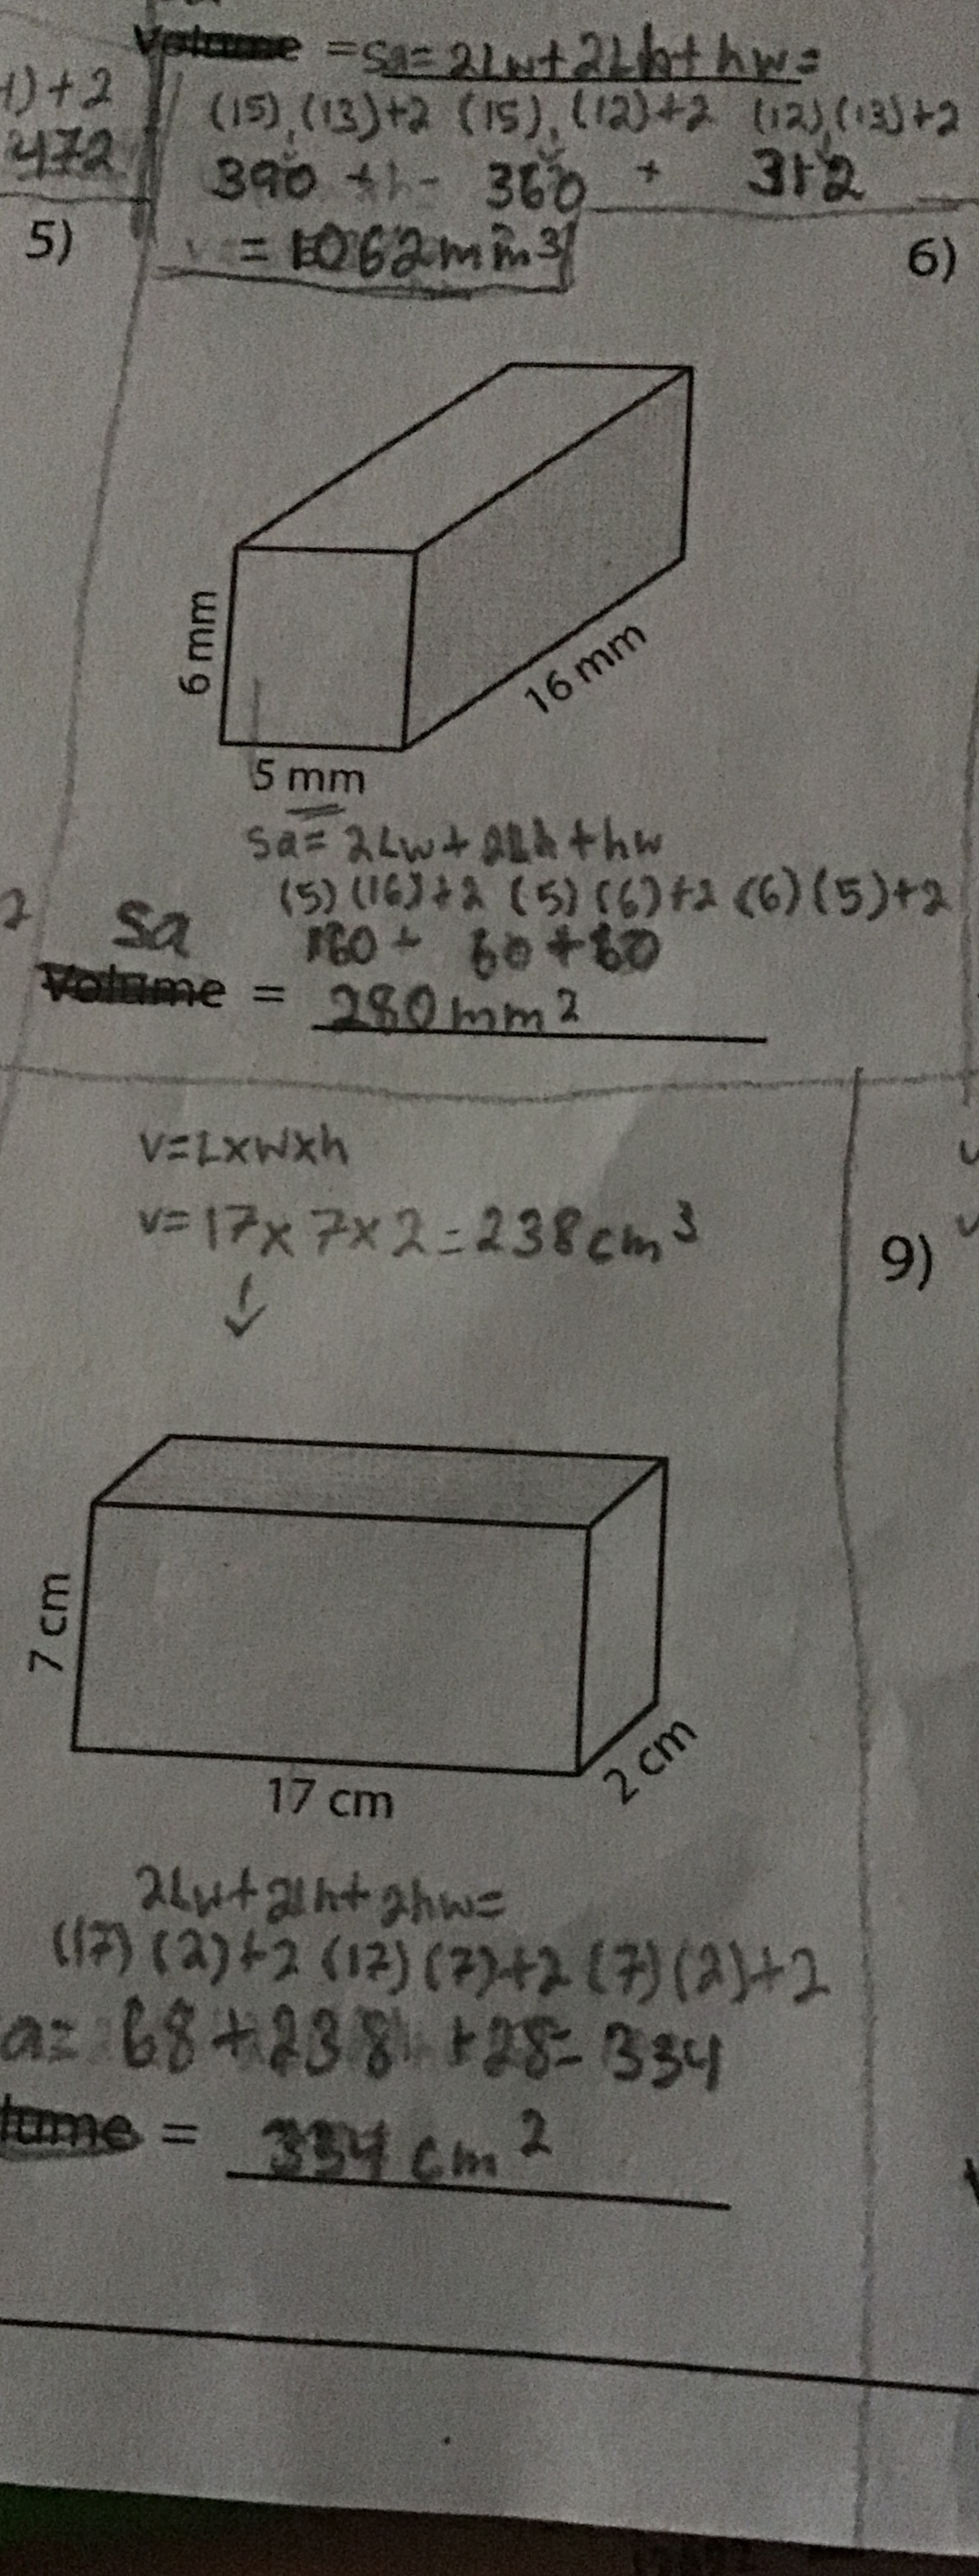 Volume = Sa = 2Lw + 2Lh + hw =
1) + 2
(15), (13) + 2 (15), (12) + 2 (12), (13) + 2
472
390 + 360 + 312
= 1062 mm3
5)
6)
6 mm
16 mm
5 mm
Sa = 2Lw + 2Lh + hw
(5) (16) + 2 (5) (6) + 2 (6) (5) + 2
2
Sa
160 + 60 + 60
Volume = 280 mm2
V = L x W x h
V = 17 x 7 x 2 = 238 cm3
9)
7 cm
17 cm
2 cm
2Lw + 2Lh + 2hw =
(17) (2) + 2 (17) (7) + 2 (7) (2) + 2
a = 68 + 238 + 28 = 334
lume = 334 cm2